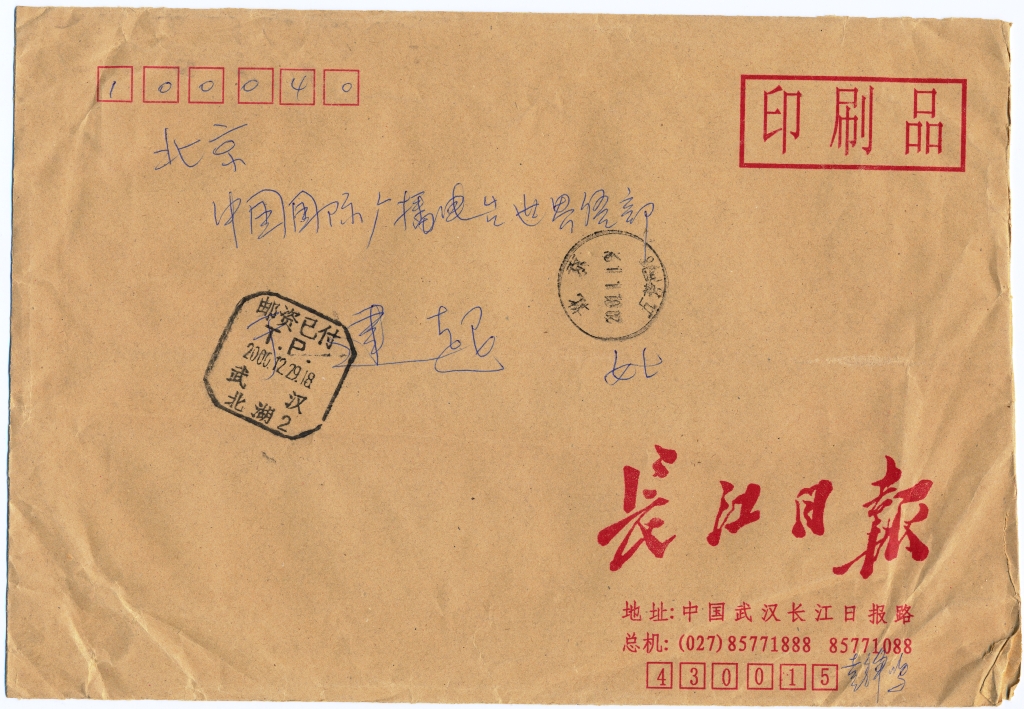 100040
印刷品
北京
中国国际广播电台世界语部
建起
邮资已付
T.P.
2000.12.29.18
武汉
北湖2
北京
长江日报
地址:中国武汉长江日报路
总机:(027)85771888 85771088
430015